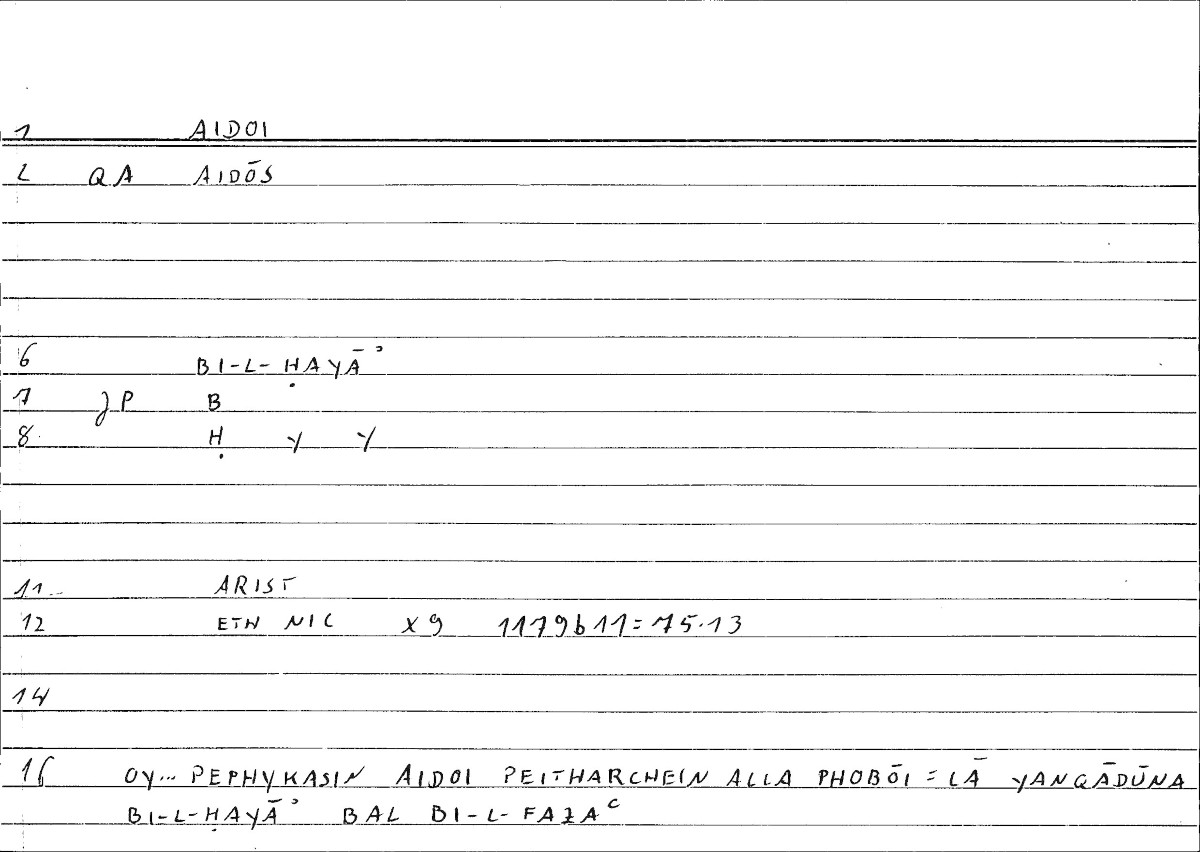 1 AIDOI
2 QA AIDŌS
6 BI-L-ḤAYĀʾ
7 JP B
8 Ḥ Y Y
11 ARIST
12 ETH NIC X 9 1179b11=75.13
14
16 OY... PEPHYKASIN AIDOI PEITHARCHEIN ALLA PHOBŌI = LĀ YANQĀDŪNA
BI-L-ḤAYĀʾ BAL BI-L-FAZAʿ